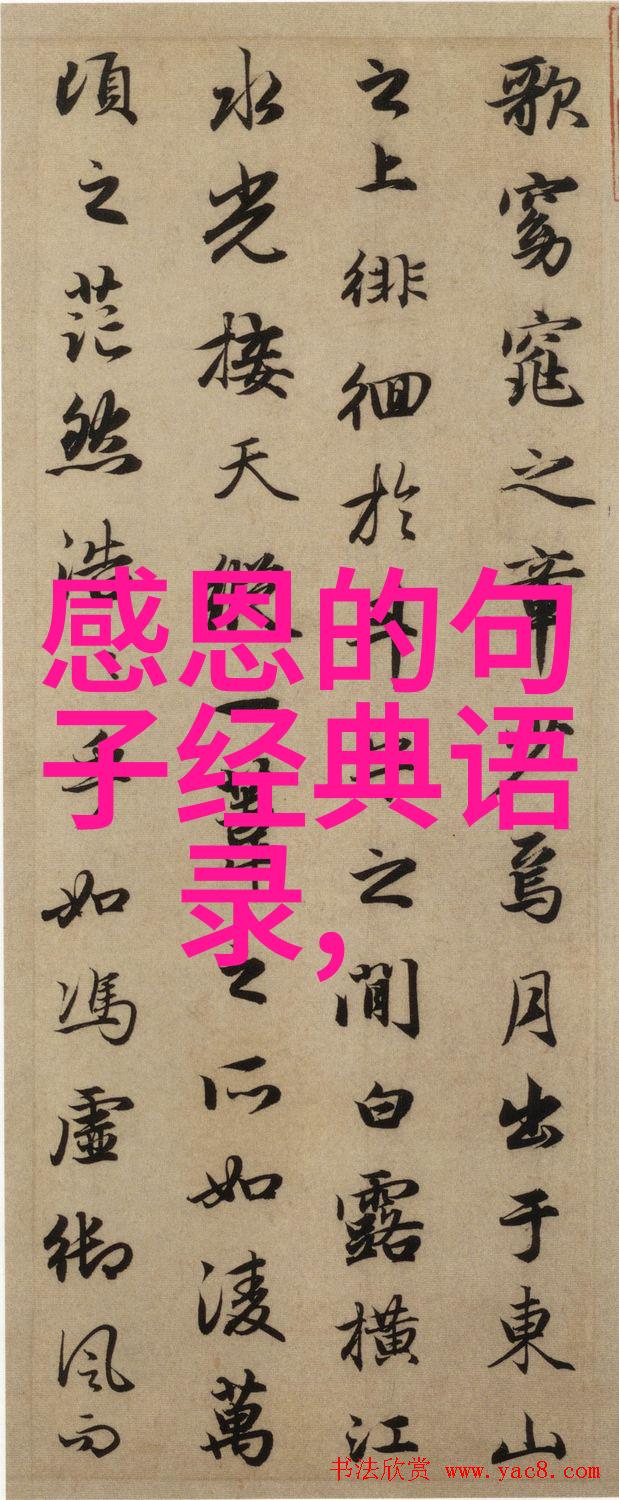 歌窈窕之章少焉月出于東山
之上徘徊於斗牛之間白露橫江
水光接天縱一葦之所如淩萬
頃之茫然浩々乎如馮虛御風而
感恩的句
子经典语
录,
书法欣赏 www.yac8.com